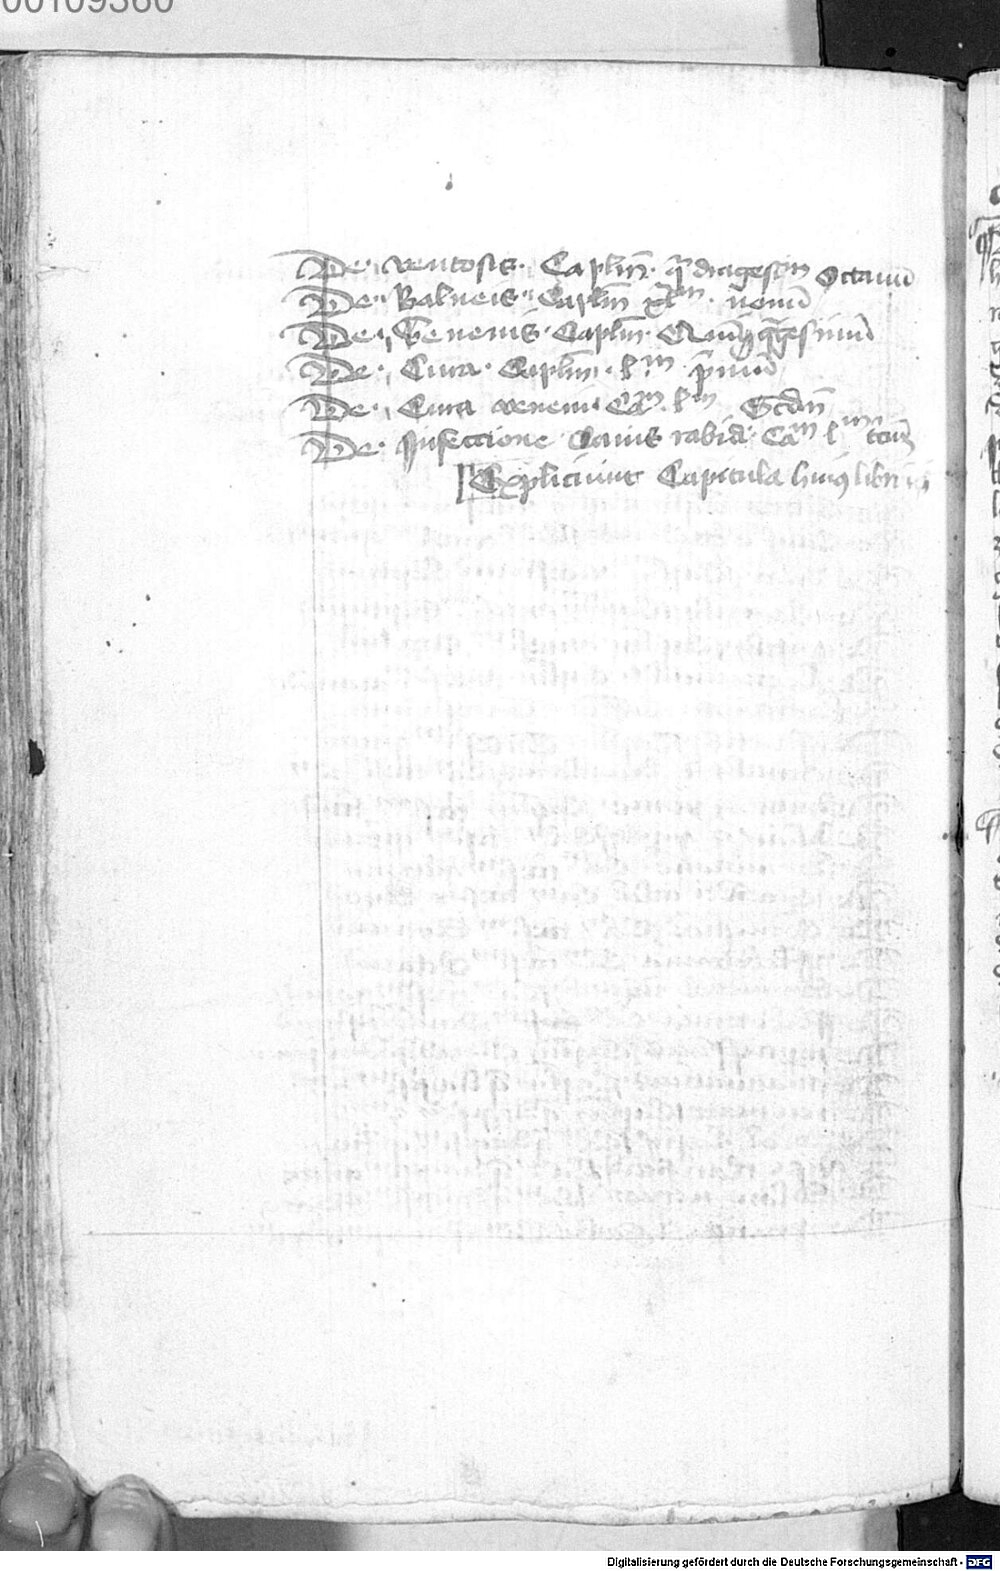 00109360
De ventosis. Caplm̄. q̄dragesm̄ Octauū
De Balneis. Caplm̄ xlm. nonū
De Venenis. Caplm̄. Quīq̄gesimū
De Cura. Caplm̄. lm p̄mū
De Cura veneni Cam. lm Scdm̄
De Infeccione Canis rabidi Cam lm tciū
Expliciunt Capitula huiꝰ libri
Digitalisierung gefördert durch die Deutsche Forschungsgemeinschaft - DFG